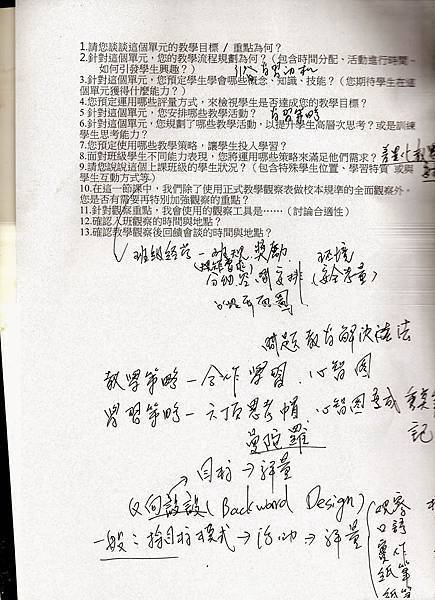 1.請您談談這個單元的教學目標 / 重點為何？
2.針對這個單元，您的教學流程規劃為何？（包含時間分配、活動進行時間、
如何引發學生興趣？）引入
3.針對這個單元，您預定學生會哪些概念、知識、技能？（您期待學生在這
個單元獲得什麼能力？）
4.您預定運用哪些評量方式，來檢視學生是否達成您的教學目標？
5.針對這個單元，您安排哪些教學活動？
6.針對這個單元，您規劃了哪些教學活動，以提升學生高層次思考？或是訓練
學生思考能力？
7.您預定使用哪些教學策略，讓學生投入學習？
8.面對班級學生不同能力表現，您將運用哪些策略來滿足他們需求？
9.請您說說這個上課班級的學生狀況？（包含特殊學生位置、學習特質 或與
學生互動方式等）
10.在這一節課中，我們除了使用正式教學觀察表做校本規準的全面觀察外，
您是否有需要再特別加強觀察的重點？
11.針對觀察重點，我會使用的觀察工具是……（討論合適性）
12.確認入班觀察的時間與地點？
13.確認教學觀察後回饋會談的時間與地點？
班級經營－班規 獎勵 環境
問題教育解決法
教學策略－合作學習．心智圖
學習策略－六頂思考帽．心智圖
曼陀羅
記
目標→評量
反向設設(Backward Design)
一般：目標模式→活動→評量
觀察
口語
實作
紙筆